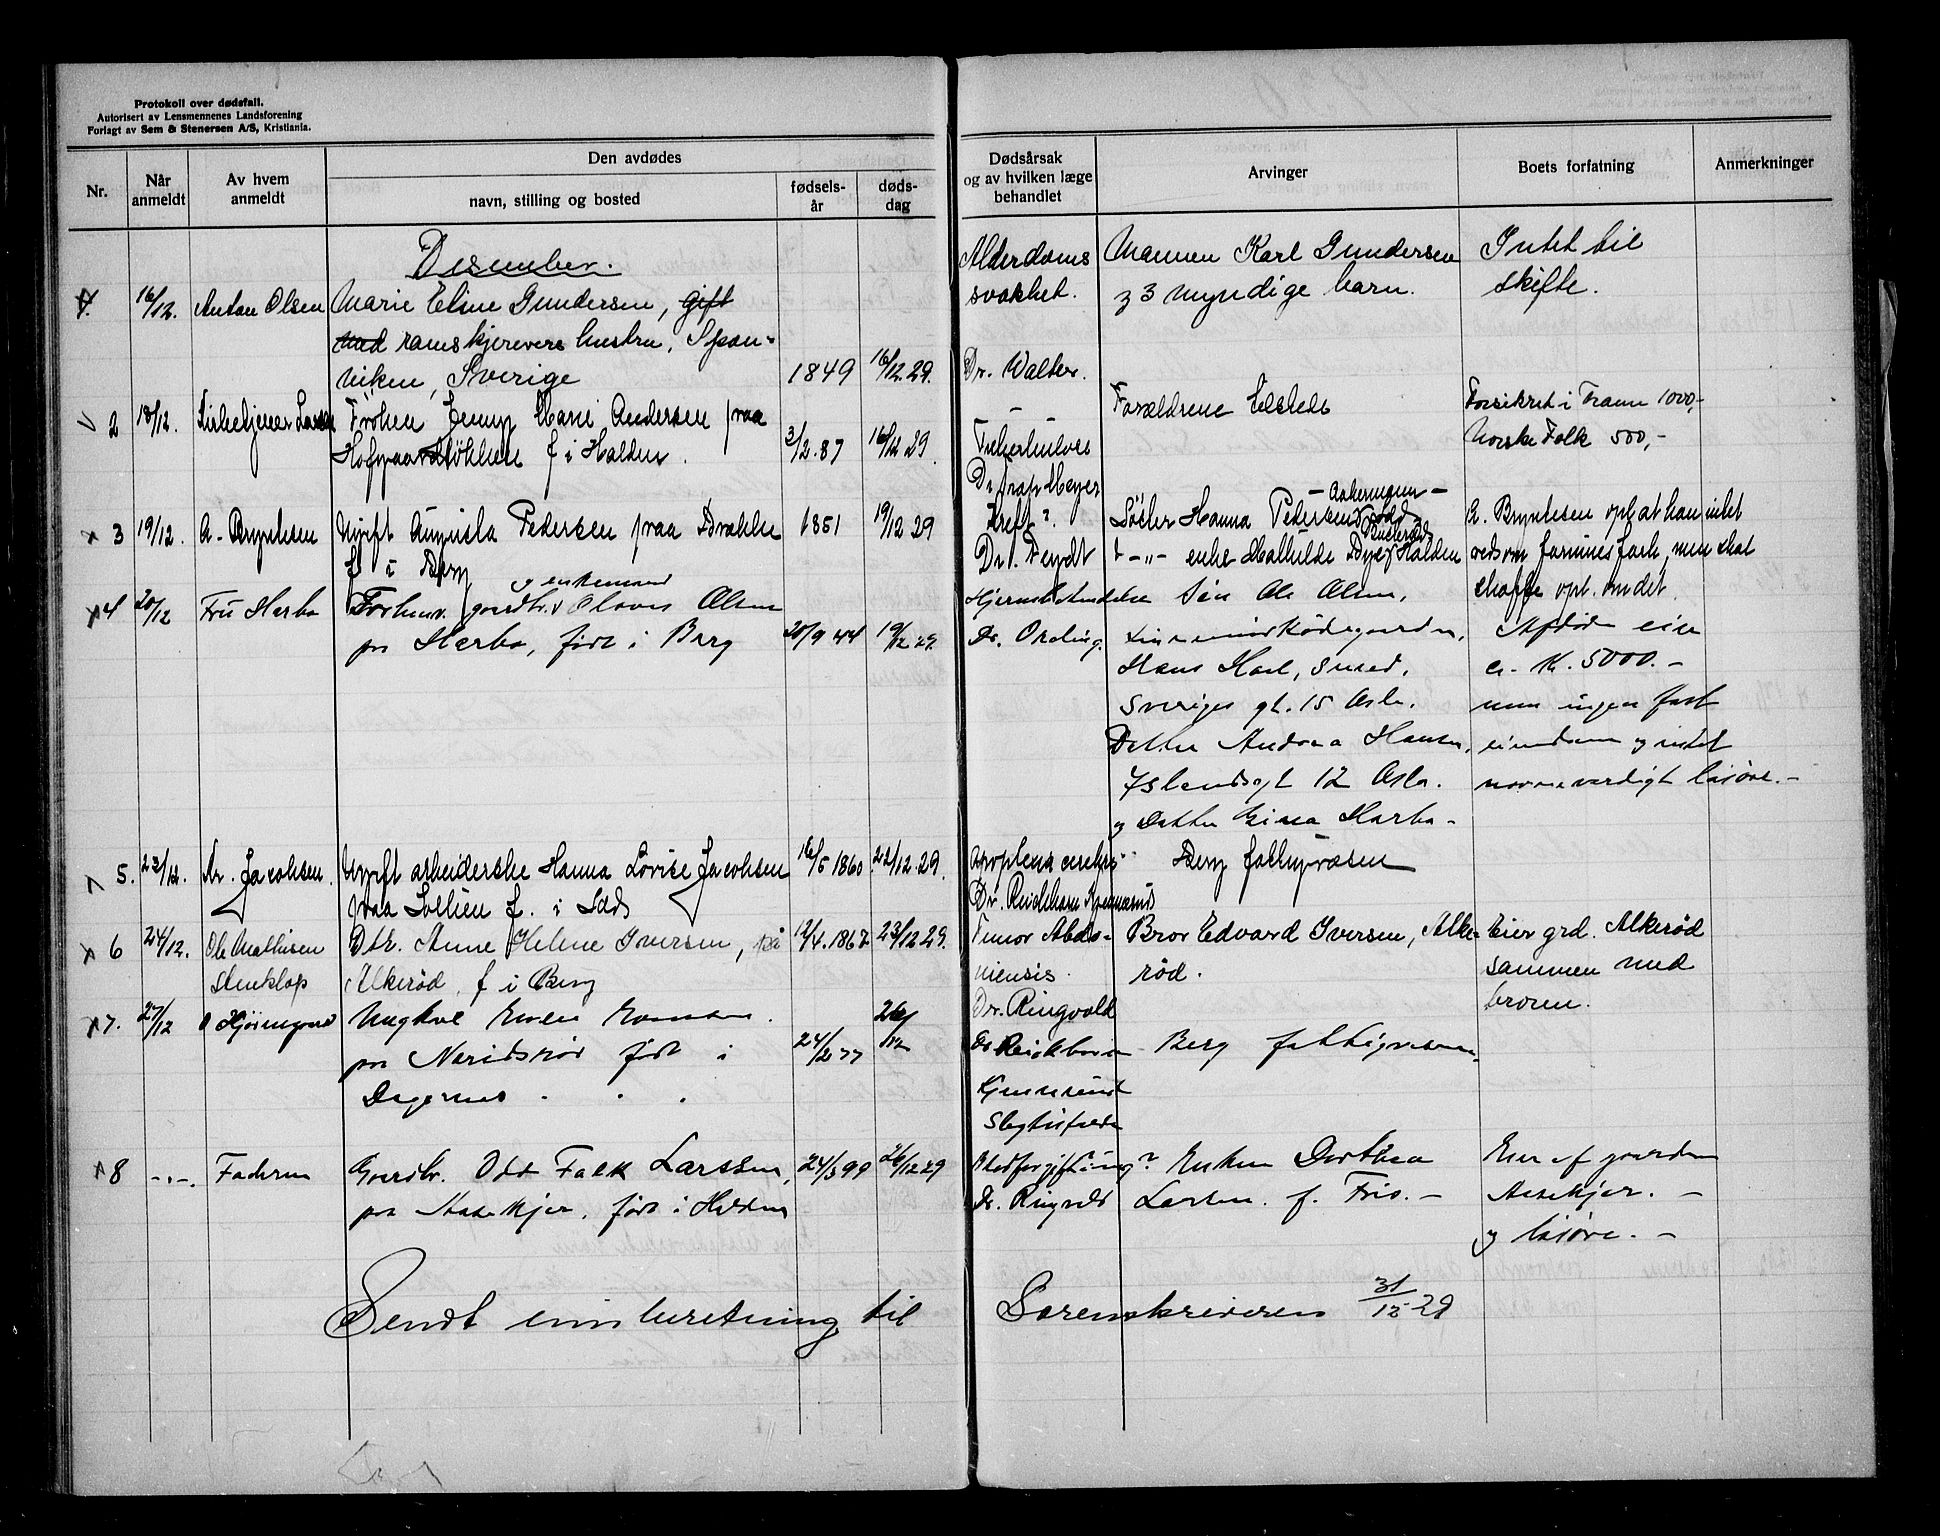 Protokoll over dødsfall.
Autorisert av Lensmennenes Landsforening
Forlagt av Sem & Stenersen A/S, Kristiania.
Nr.
Når anmeldt
Av hvem anmeldt
Den avdødes
navn, stilling og bosted
fødsels-år
døds-dag
Dødsårsak og av hvilken læge behandlet
Arvinger
Boets forfatning
Anmerkninger
Desember.
16/12. Anton Olsen Marie Eline Gundersen, gift
med ramskjerevers hustru, Span-
viken, Sverige 1849 16/12.29.
Alderdoms
svakhet.
Dr. Walter.
Mannen Karl Gundersen
3 myndige barn.
Intet til
skifte.
2 18/12. Kirketjener Larsen Frøken Jenny Marie Andersen paa
Hofgaardløkken f i Halden. 3/2.87 16/12 29
Dr Trap Meyer
Forældrene
Forsikret i Fram 1000,-
Norske Folk 500,-
3 19/12. A. Bryntesen Ugift Augusta Pedersen paa
f i Berg 1851 19/12 29
Kreft?
Søster Hanna Pedersen
t -"- enke Mathilde Halden
A. Bryntesen opl at han intet
ved om formues forh, men skal
skaffe opl. om det.
4 20/12 Fru Harbo Forhenv. gaardbr. og enkemand Olaves Olsen
pr Harbo, født i Berg 20/9 44 19/12 29
Dr. Ording.
Søn Ole Olsen,
Hans Karl, smed,
Sveriges gt. 15 Oslo.
Datter Andrea Hansen,
Islandsgt 12 Oslo.
og Datter Harbo-
Afdøde eier
ca. Kr. 5000.-
men ingen fast
eiendom og intet
nevneverdigt løsøre.-
5. 23/12. Ar. Jacobsen. Ugift arbeiderske Hanna Lovise Jacobsen
paa Sollien f. i Idd 16/5 1860 22/12.29.
Apoplexia cerebri
Berg fattigvæsen
6 24/12. Ole Mathisen
Stenklop
Dtr. Anne Helene Iversen, på
Alkerød, f i Berg 12/4.1867 23/12 29.
Tumor Abdo-
miensis.
Dr. Ringvold
Bror Edvard Iversen, Alke-
rød.
Eier grd. Alkerød
sammen med
broren.
7. 27/12 Ungkar
pr født i
Degernes 24/2 77 26/12
Berg fattigvesen.
8 -"-. Faderen Gaardbr. Odd Falk Larssen,
pr Aasekjær, født i Halden 24/5 99 26/12 29
Blodforgiftning?
Dr. Ringvold
Enken Dorthea
Larsen. f. Friis.-
Eier af gaarden
Aasekjær.-
og løsøre.-
Sendt innberetning til Sorenskriveren 31/12-29